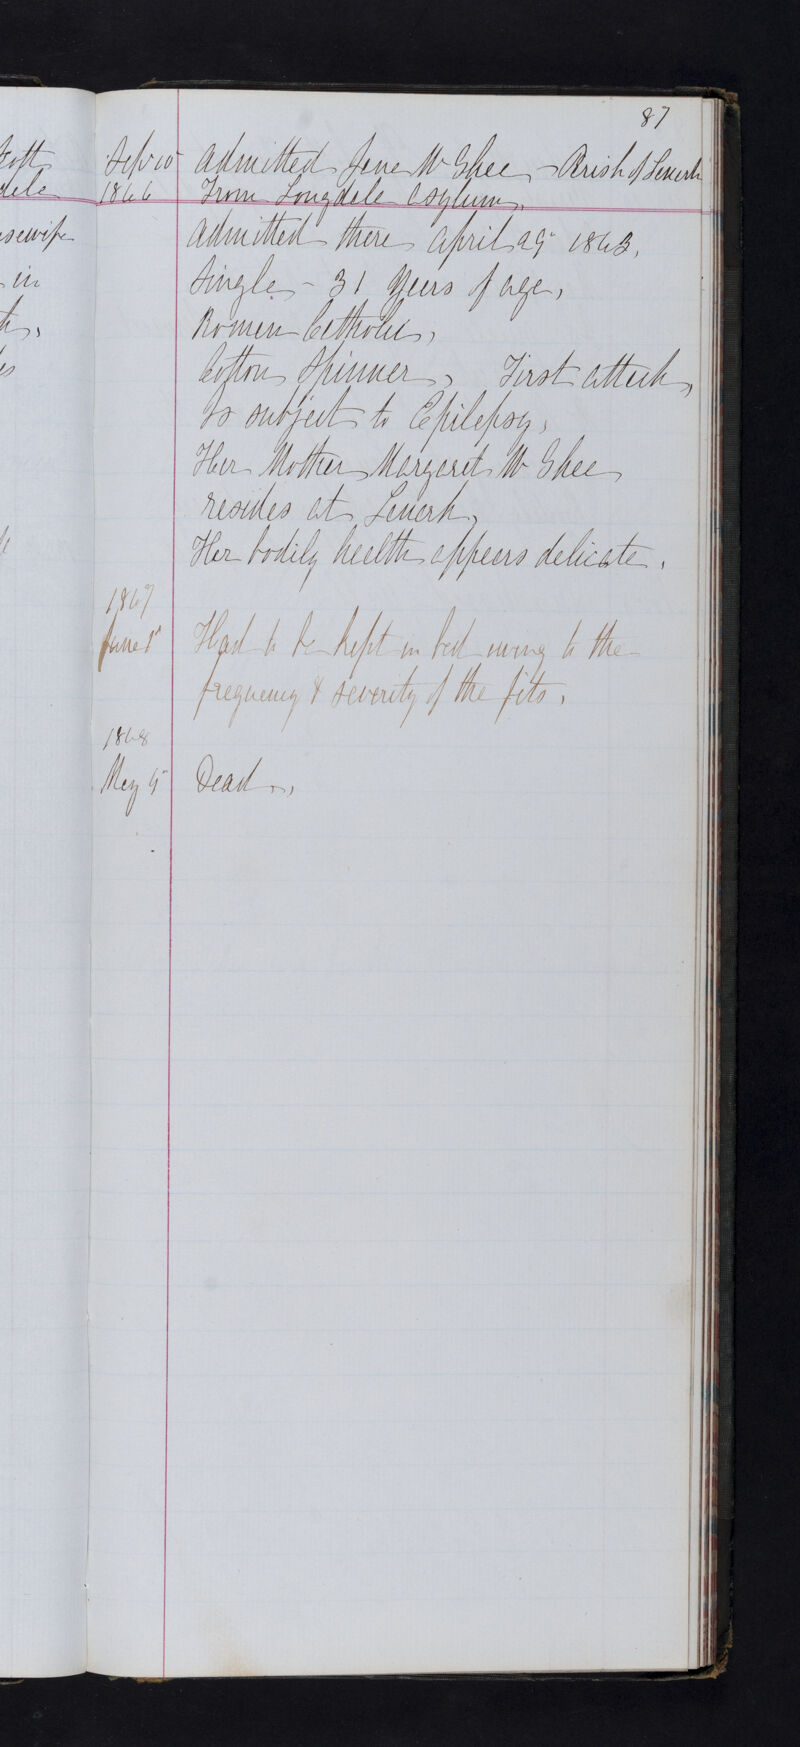 87
Sep 10 Admitted Jane McGhee - Parish of Lanark
1866 From Longdale Asylum,
Admitted there April 29 1863,
Single - 31 Years of age,
Roman Catholic,
Cotton Spinner, First attack,
Is subject to Epilepsy,
Her Mother Margaret McGhee
resides at Lanark,
Her bodily health appears delicate.
1867
June 1st Had to be kept in bed owing to the
frequency & severity of the fits.
1868
May 9 Dead.